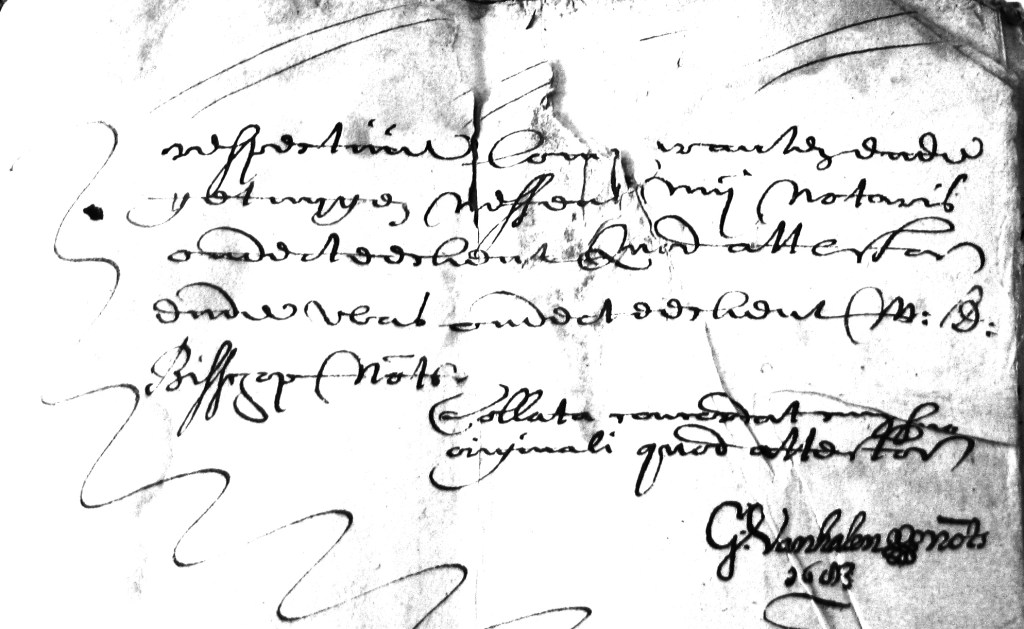 respective Comparanten ende
getuygen neffens mij Notaris
onderteeckent Quod attestor
ende was onderteeckent W: D:
Bisschop Nots
Collata concordat cum suo
originali quod attestor
G. Vanhalen nots
1683